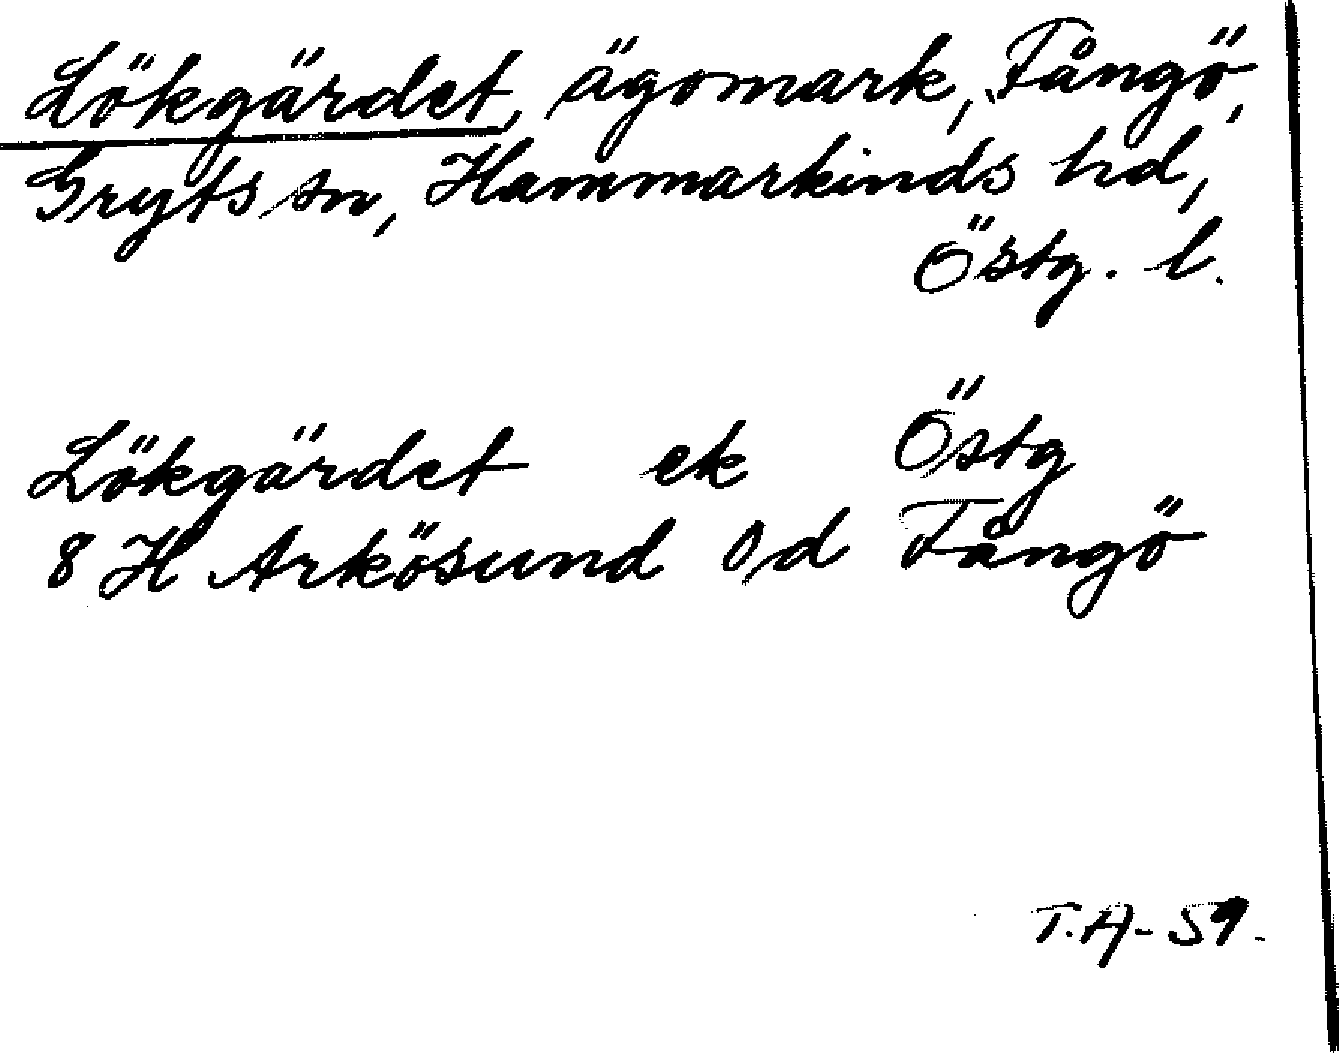 Lökgärdet, ägomark, Fångö,
Gryts sn, Hammarkinds hd,
Östg. l.
Lökgärdet ek Östg
8 H Arkösund 0,d Fångö
T.A-59.